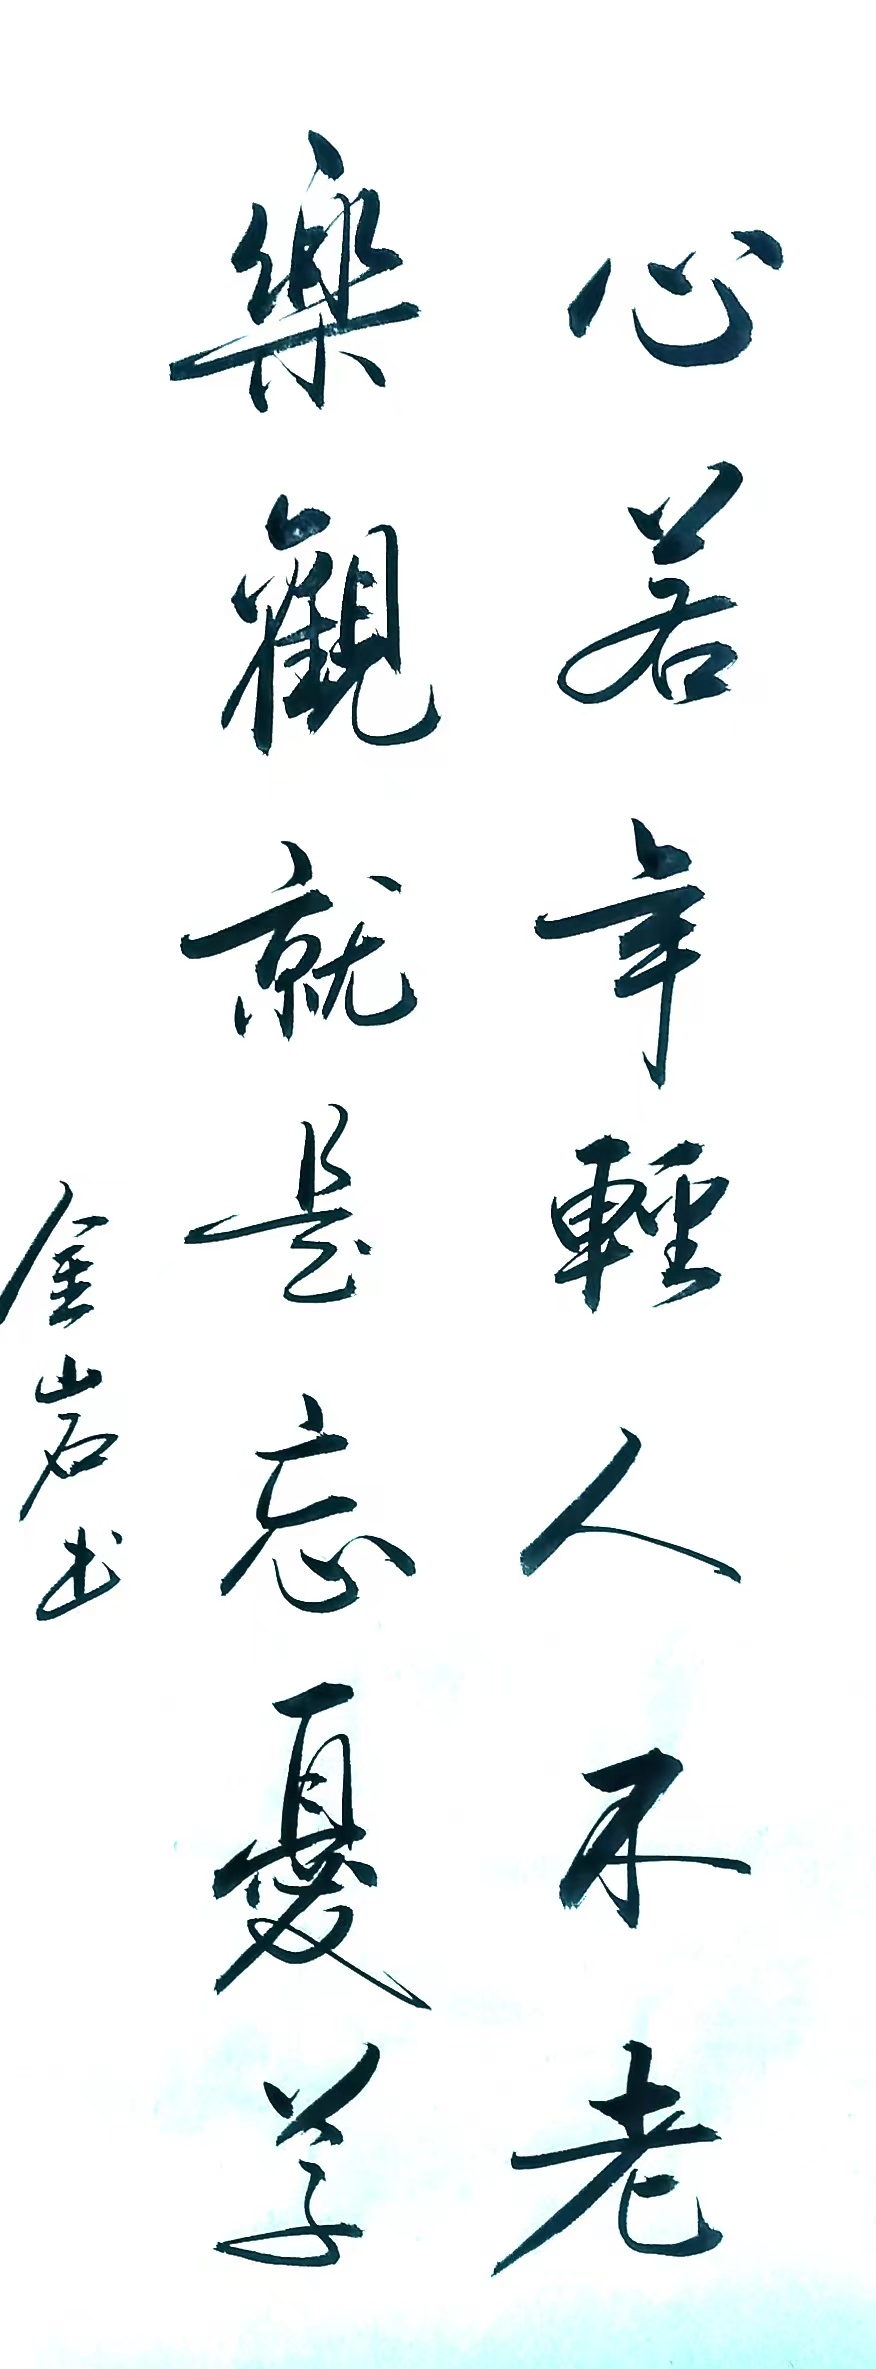 心若年輕人不老
樂觀就是忘憂草
金山岩书